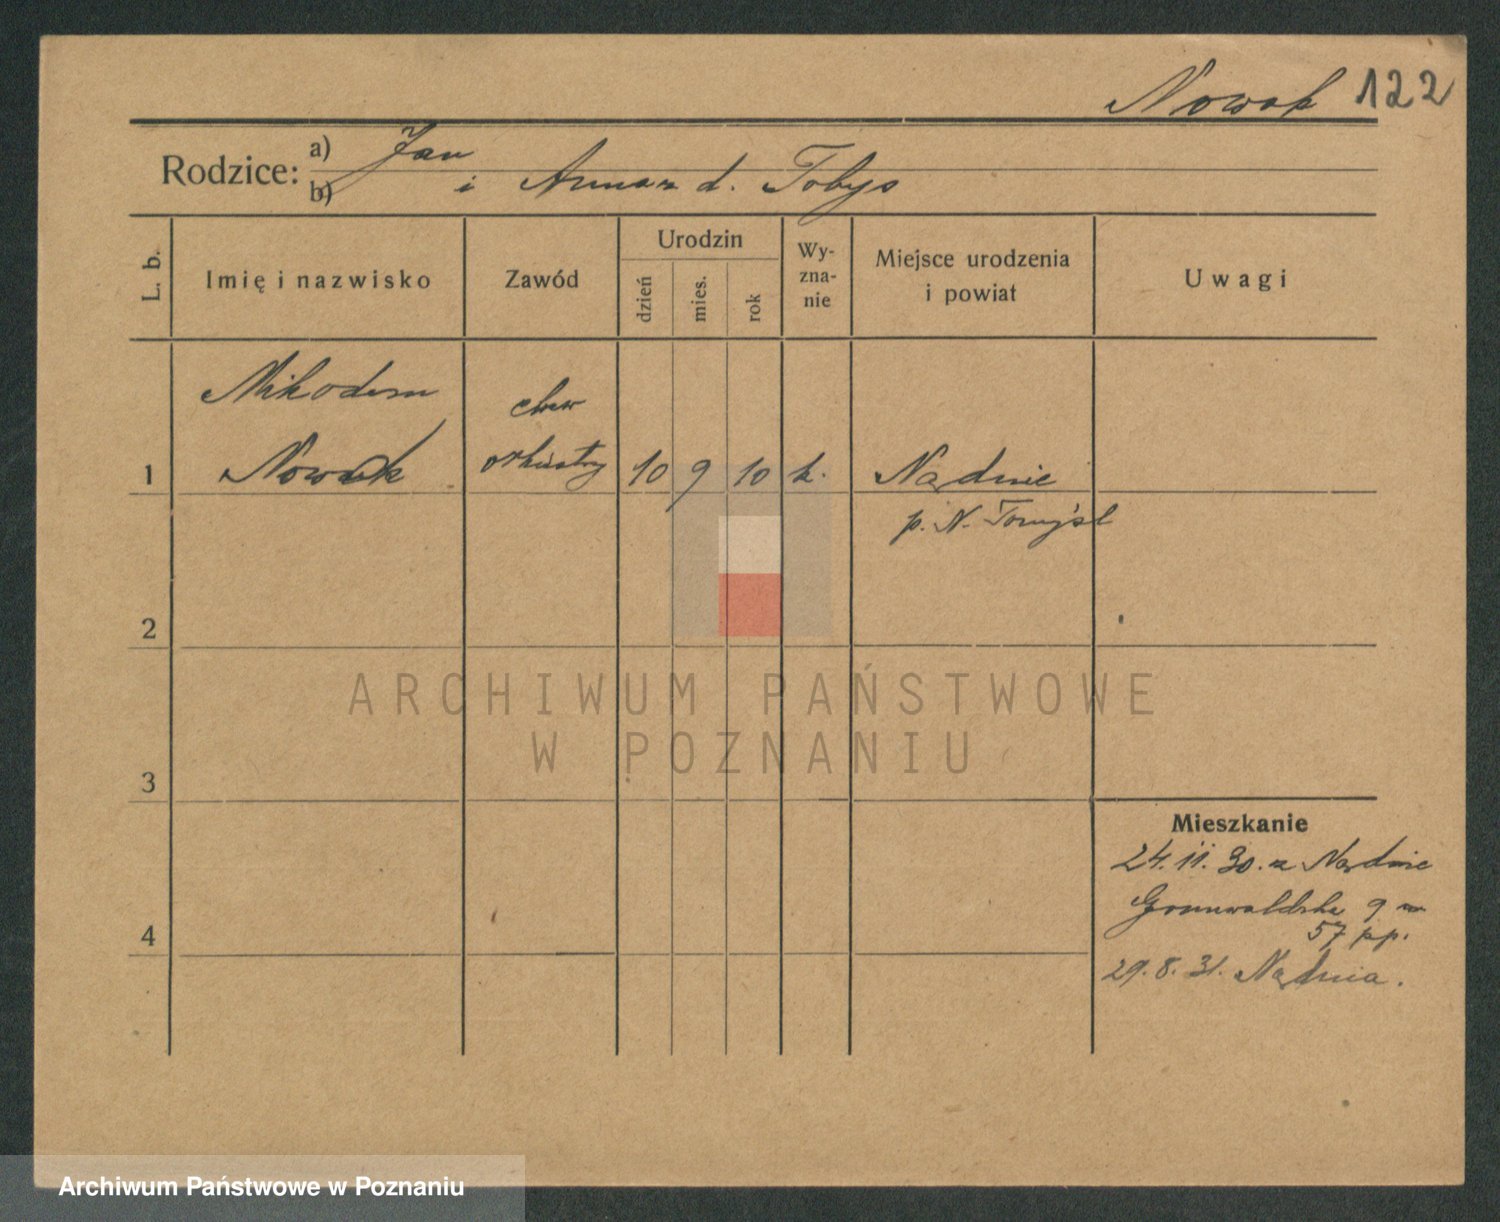 Nowak 122
Rodzice: a) Jan
b) i Anna z d. Tobys
L. b.
Imię i nazwisko
Zawód
Urodzin
dzień
mies.
rok
Wy-
zna-
nie
Miejsce urodzenia
i powiat
Uwagi
Nikodem
elew
1 Nowak orkiestry 10 9 10 k. Nądnie
p. N. Tomyśl
2
3
4
ARCHIWUM PAŃSTWOWE
W POZNANIU
Mieszkanie
24.11.30. z Nądnie
Grunwaldzka 9
57 pp.
29.8.31. Nądnia.
Archiwum Państwowe w Poznaniu